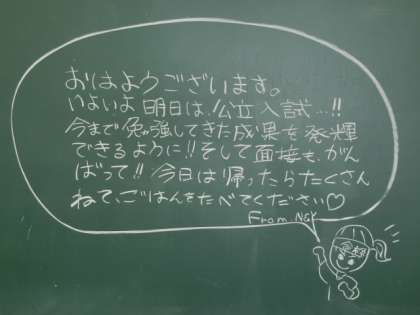 おはようございます。
いよいよ明日は、公立入試…!!
今まで勉強してきた成果を発揮
できるように!!そして面接も、がん
ばって!!今日は帰ったらたくさん
ねて、ごはんをたべてください♡
From. NGY